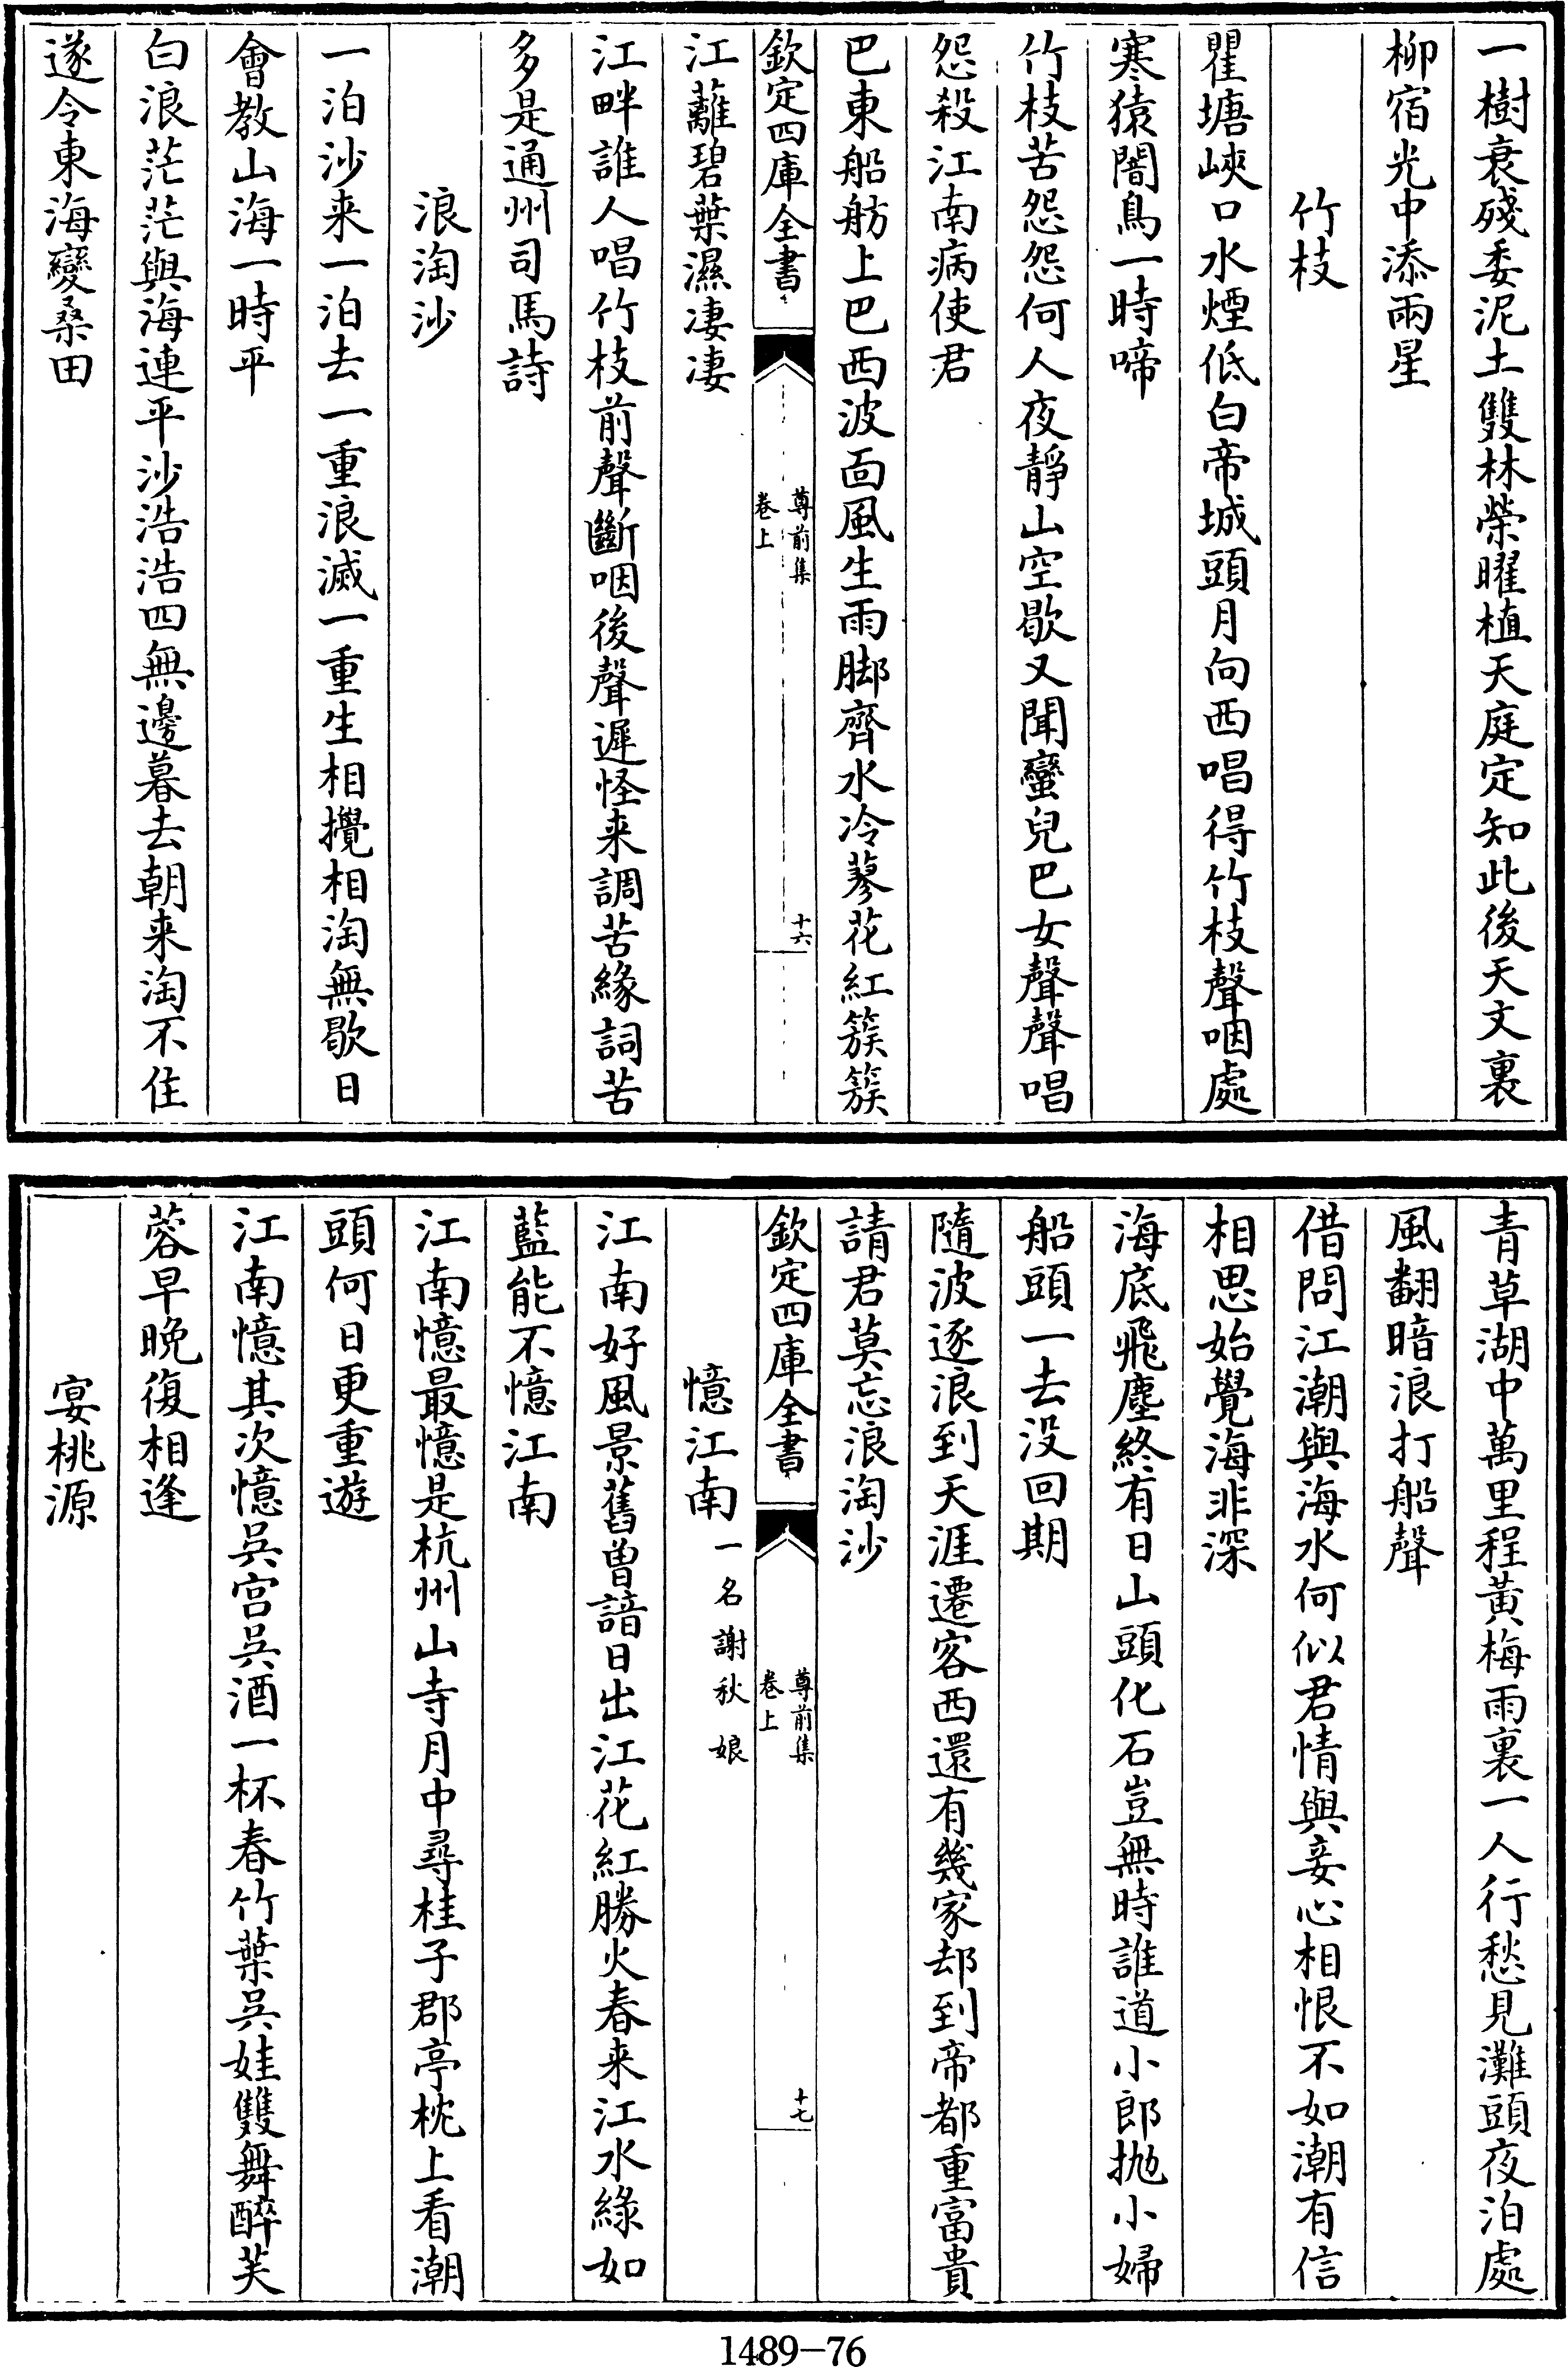 一樹衰殘委泥土雙林榮曜植天庭定知此後天文裏
柳宿光中添兩星
竹枝
瞿塘峽口水煙低白帝城頭月向西唱得竹枝聲咽處
寒猿闇鳥一時啼
竹枝苦怨怨何人夜靜山空歇又聞蠻兒巴女聲聲唱
怨殺江南病使君
巴東船舫上巴西波面風生雨脚齊水冷蓼花紅簇簇
欽定四庫全書
尊前集
卷上
十六
江蘺碧葉濕凄凄
江畔誰人唱竹枝前聲斷咽後聲遲怪来調苦緣詞苦
多是通州司馬詩
浪淘沙
一泊沙来一泊去一重浪滅一重生相攪相淘無歇日
會教山海一時平
白浪茫茫與海連平沙浩浩四無邊暮去朝来淘不住
遂令東海變桑田
青草湖中萬里程黃梅雨裏一人行愁見灘頭夜泊處
風翻暗浪打船聲
借問江潮與海水何似君情與妾心相恨不如潮有信
相思始覺海非深
海底飛塵終有日山頭化石豈無時誰道小郎抛小婦
船頭一去没回期
隨波逐浪到天涯遷客西還有幾家却到帝都重富貴
請君莫忘浪淘沙
欽定四庫全書
尊前集
卷上
十七
憶江南一名謝秋娘
江南好風景舊曽諳日出江花紅勝火春来江水綠如
藍能不憶江南
江南憶最憶是杭州山寺月中尋桂子郡亭枕上看潮
頭何日更重遊
江南憶其次憶吳宫吳酒一杯春竹葉吳娃雙舞醉芙
蓉早晚復相逢
宴桃源
1489-76